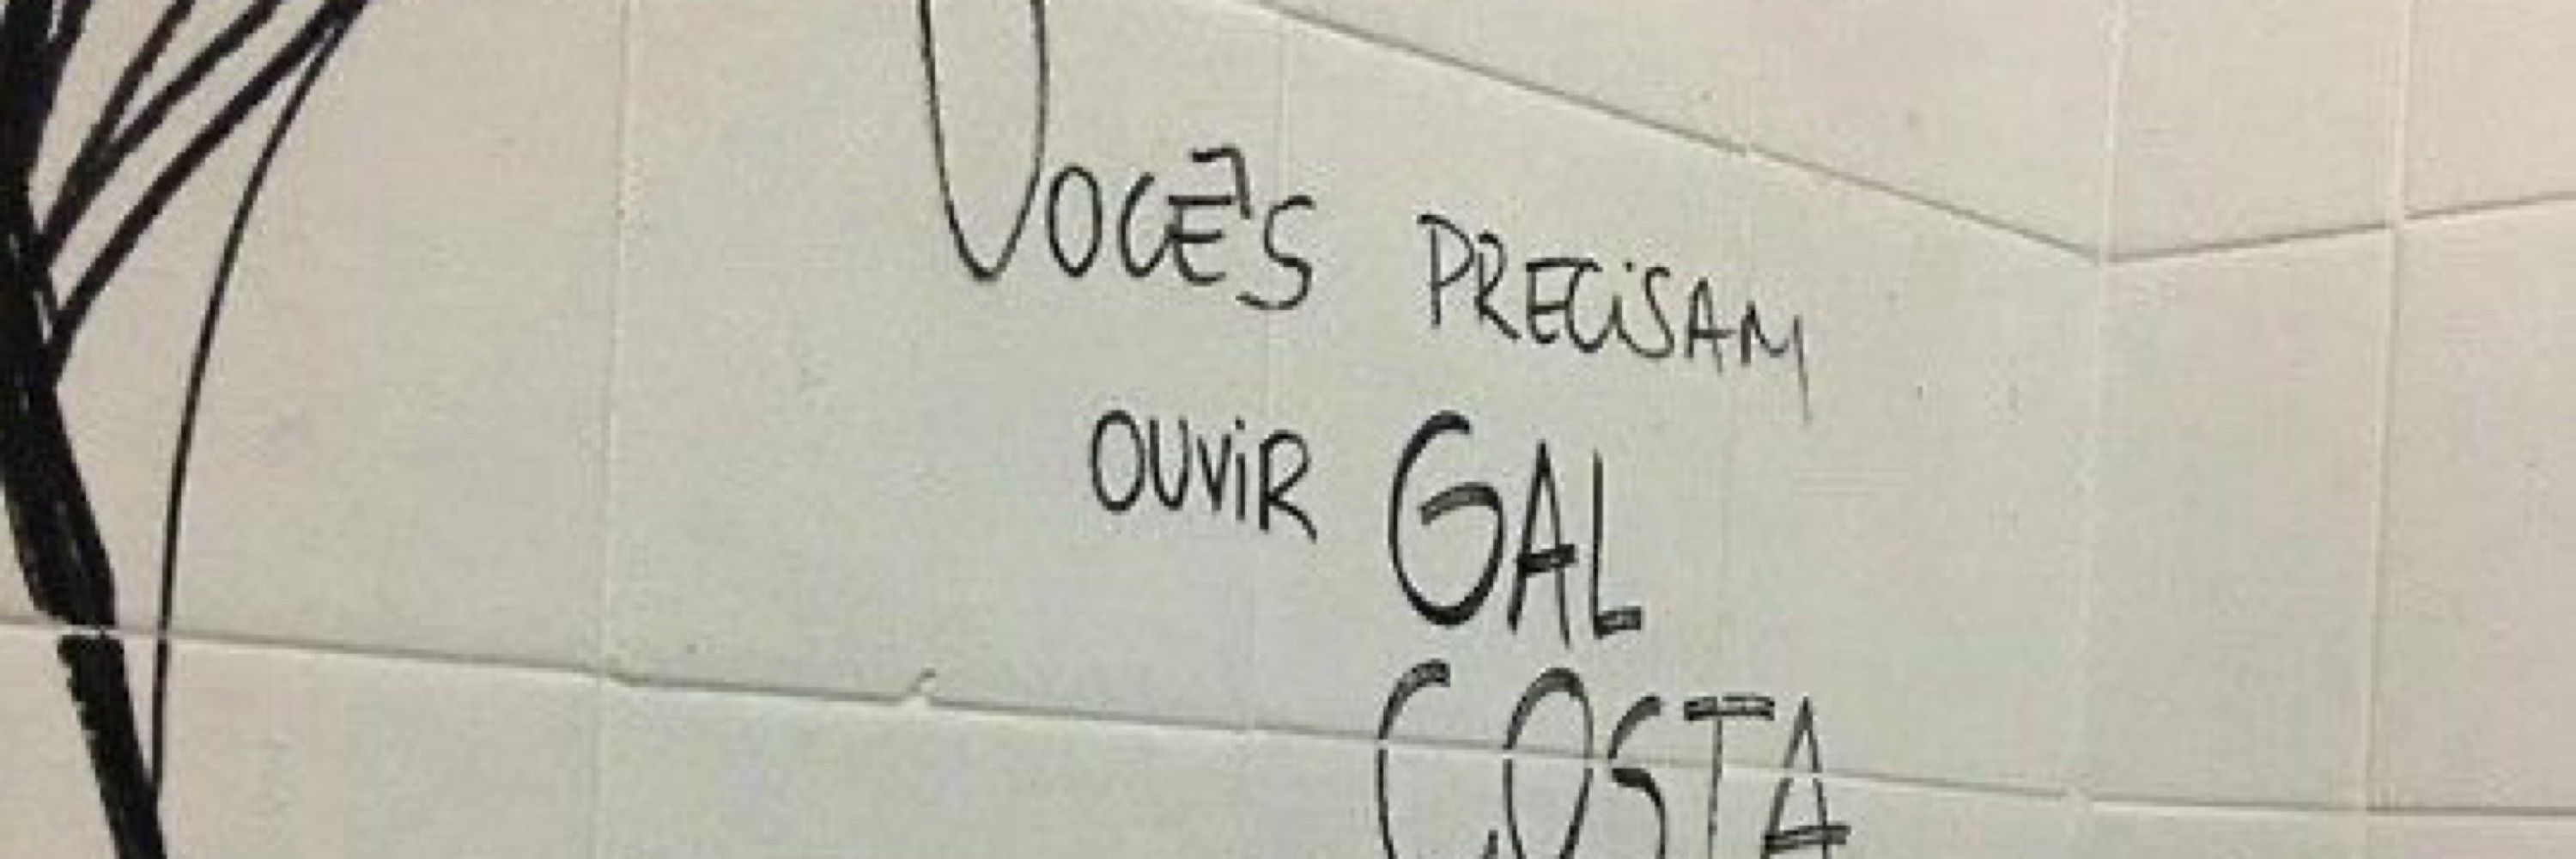 VOCÊS PRECiSAM
OUViR GAL
COSTA